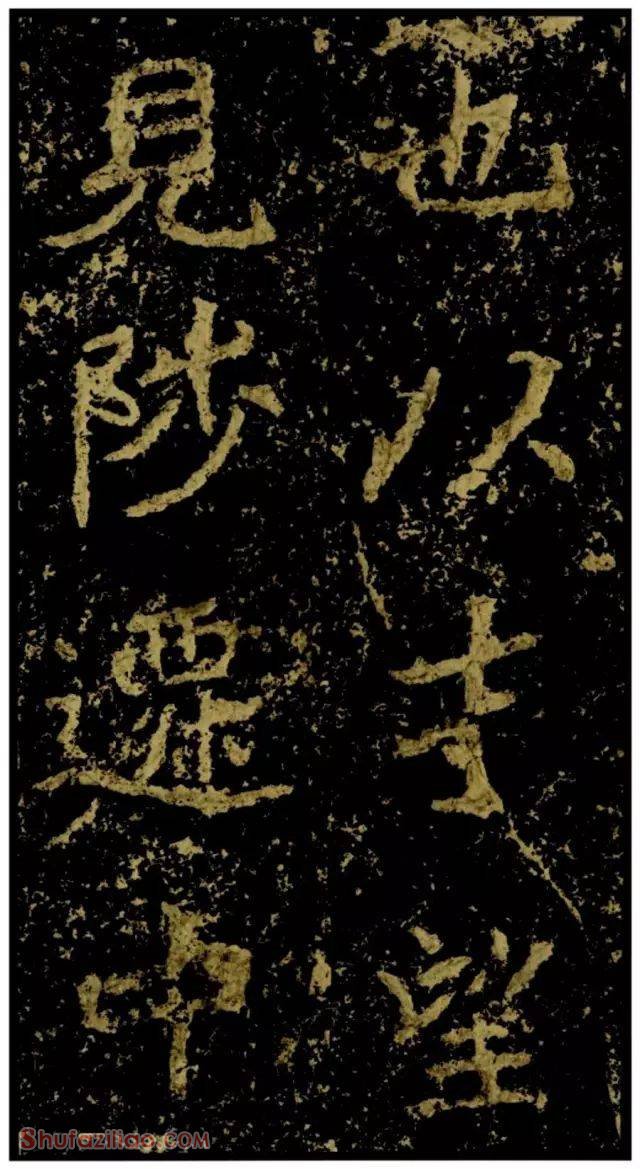 也以望
見陟遷中
Shufaziliao.COM